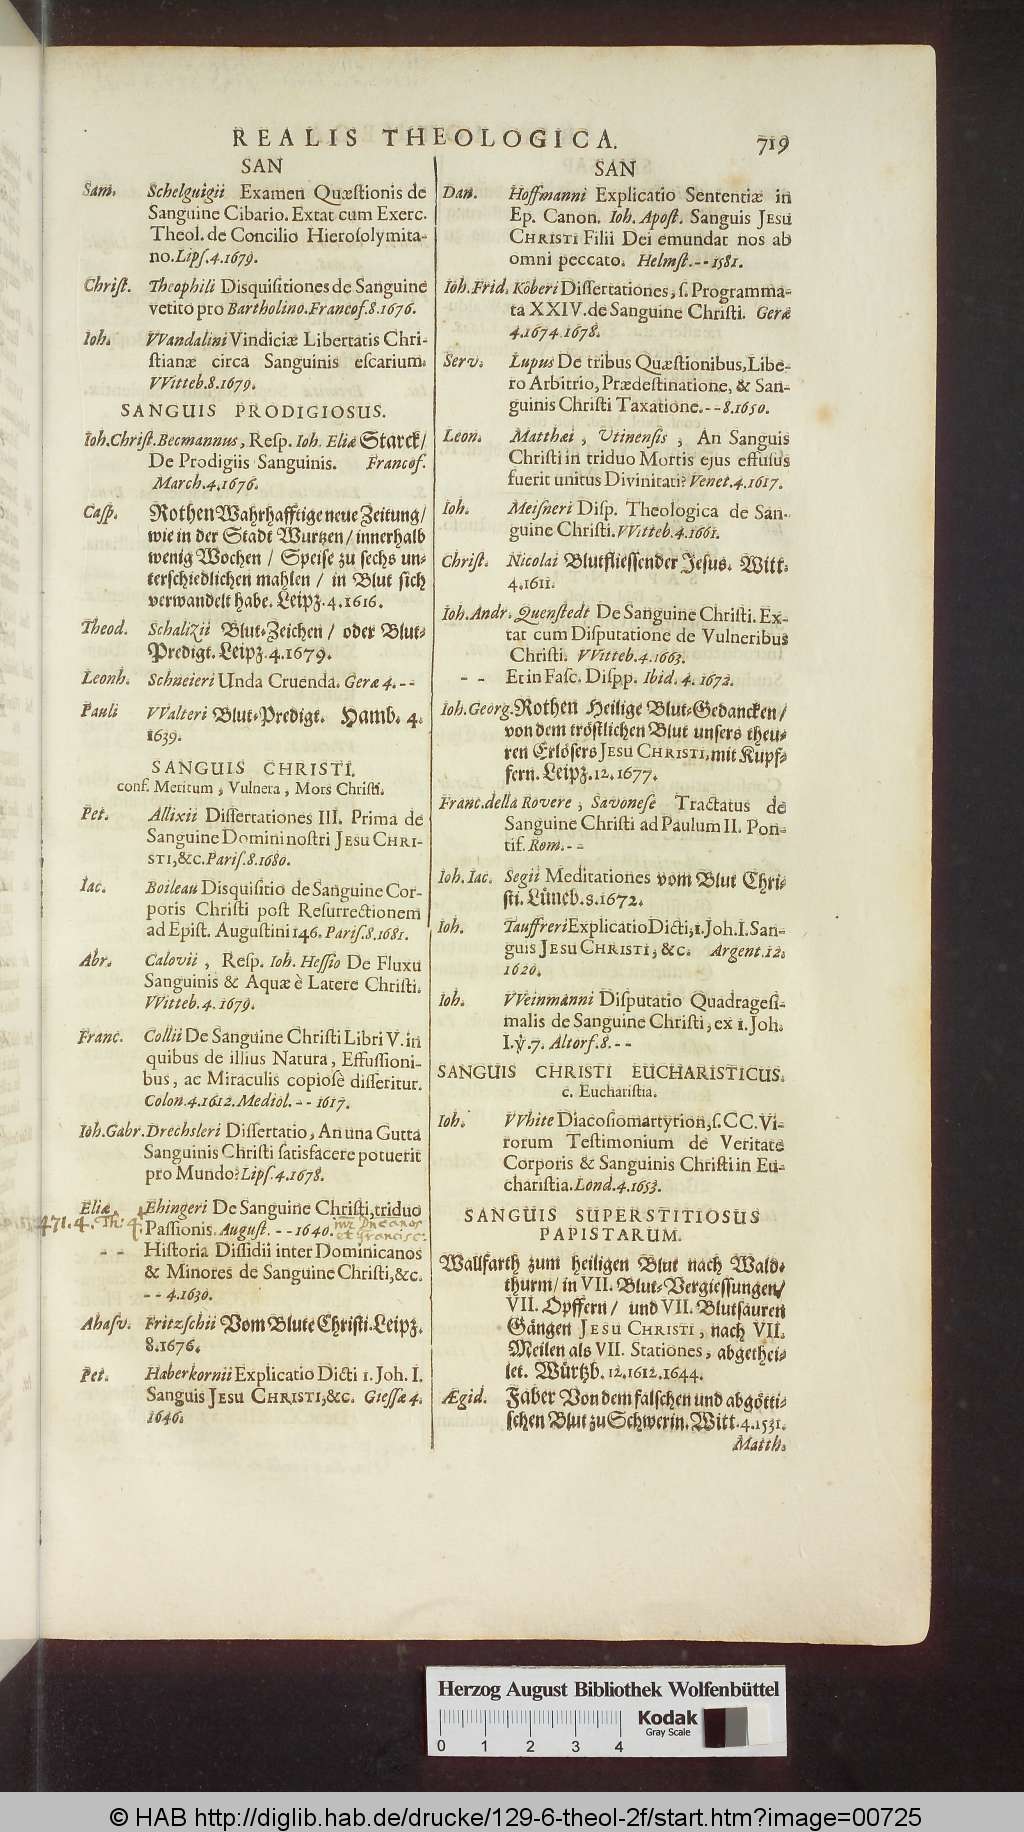 REALIS THEOLOGICA. 719
SAN
Sam. Schelguigii Examen Quæstionis de
Sanguine Cibario. Extat cum Exerc.
Theol. de Concilio Hierosolymita-
no. Lips. 4. 1679.
Christ. Theophili Disquisitiones de Sanguine
vetito pro Bartholino. Francof. 8. 1676.
Ioh. VVandalini Vindiciæ Libertatis Chri-
stianæ circa Sanguinis escarium.
VVitteb. 8. 1679.
SANGUIS PRODIGIOSUS.
Ioh. Christ. Becmannus, Resp. Ioh. Eliæ Starck/
De Prodigiis Sanguinis. Francof.
March. 4. 1676.
Casp. Rothen Wahrhafftige neue Zeitung/
wie in der Stadt Wurtzen/ innerhalb
wenig Wochen / Speise zu sechs un-
terschiedlichen mahlen / in Blut sich
verwandelt habe. Leipz. 4. 1616.
Theod. Schalizii Blut-Zeichen / oder Blut-
Predigt. Leipz. 4. 1679.
Leonh. Schneieri Unda Cruenda. Geræ 4. - -
Pauli VValteri Blut-Predigt. Hamb. 4.
1639.
SANGUIS CHRISTI.
conf. Meritum, Vulnera, Mors Christi.
Pet. Allixii Dissertationes III. Prima de
Sanguine Domini nostri JESU CHRI-
STI, &c. Paris. 8. 1680.
Iac. Boileau Disquisitio de Sanguine Cor-
poris Christi post Resurrectionem
ad Epist. Augustini 146. Paris. 8. 1681.
Abr. Calovii, Resp. Ioh. Hessio De Fluxu
Sanguinis & Aquæ è Latere Christi.
VVitteb. 4. 1679.
Franc. Collii De Sanguine Christi Libri V. in
quibus de illius Natura, Effusioni-
bus, ac Miraculis copiosè disseritur.
Colon. 4. 1612. Mediol. - - 1617.
Ioh. Gabr. Drechsleri Dissertatio, An una Gutta
Sanguinis Christi satisfacere potuerit
pro Mundo? Lips. 4. 1678.
Eliæ Ehingeri De Sanguine Christi, triduo
471. 4. Th: 4. Passionis. August. - - 1640. int Dñcanos
et Francisc:
- - Historia Dissidii inter Dominicanos
& Minores de Sanguine Christi, &c.
- - 4. 1630.
Ahasv. Fritzschii Vom Blute Christi. Leipz.
8. 1676.
Pet. Haberkornii Explicatio Dicti 1. Joh. I.
Sanguis JESU CHRISTI, &c. Giessæ 4.
1646.
SAN
Dan. Hoffmanni Explicatio Sententiæ in
Ep. Canon. Ioh. Apost. Sanguis JESU
CHRISTI Filii Dei emundat nos ab
omni peccato. Helmst. - - 1581.
Ioh. Frid. Köberi Dissertationes, s. Programma-
ta XXIV. de Sanguine Christi. Geræ
4. 1674. 1678.
Serv. Lupus De tribus Quæstionibus, Libe-
ro Arbitrio, Prædestinatione, & San-
guinis Christi Taxatione. - - 8. 1650.
Leon. Matthæi, Utinensis, An Sanguis
Christi in triduo Mortis ejus effusus
fuerit unitus Divinitati? Venet. 4. 1617.
Ioh. Meisneri Disp. Theologica de San-
guine Christi. VVitteb. 4. 1661.
Christ. Nicolai Blutfliessender Jesus. Witt.
4. 1611.
Ioh. Andr. Quenstedt De Sanguine Christi. Ex-
tat cum Disputatione de Vulneribus
Christi. VVitteb. 4. 1663.
- - Et in Fasc. Dispp. Ibid. 4. 1672.
Ioh. Georg. Rothen Heilige Blut-Gedancken/
von dem tröstlichen Blut unsers theu-
ren Erlösers JESU CHRISTI, mit Kupf-
fern. Leipz. 12. 1677.
Franc. della Rovere, Savonese Tractatus de
Sanguine Christi ad Paulum II. Pon-
tif. Rom. - -
Ioh. Iac. Segii Meditationes vom Blut Chri-
sti. Lüneb. 8. 1672.
Ioh. Tauffreri Explicatio Dicti, 1. Joh. I. San-
guis JESU CHRISTI, &c. Argent. 12.
1620.
Ioh. VVeinmanni Disputatio Quadragesi-
malis de Sanguine Christi, ex 1. Joh.
I. ℣. 7. Altorf. 8. - -
SANGUIS CHRISTI EUCHARISTICUS.
c. Eucharistia.
Ioh. VVhite Diacosiomartyrion, s. CC. Vi-
rorum Testimonium de Veritate
Corporis & Sanguinis Christi in Eu-
charistia. Lond. 4. 1653.
SANGUIS SUPERSTITIOSUS
PAPISTARUM.
Wallfarth zum heiligen Blut nach Wald-
thurm/ in VII. Blut-Vergiessungen/
VII. Opffern / und VII. Blutsauren
Gängen JESU CHRISTI, nach VII.
Meilen als VII. Stationes, abgethei-
let. Würtzb. 12. 1612. 1644.
Ægid. Faber Von dem falschen und abgötti-
schen Blut zu Schwerin. Witt. 4. 1531.
Matth.
Herzog August Bibliothek Wolfenbüttel
Kodak
Gray Scale
0 1 2 3 4
© HAB http://diglib.hab.de/drucke/129-6-theol-2f/start.htm?image=00725